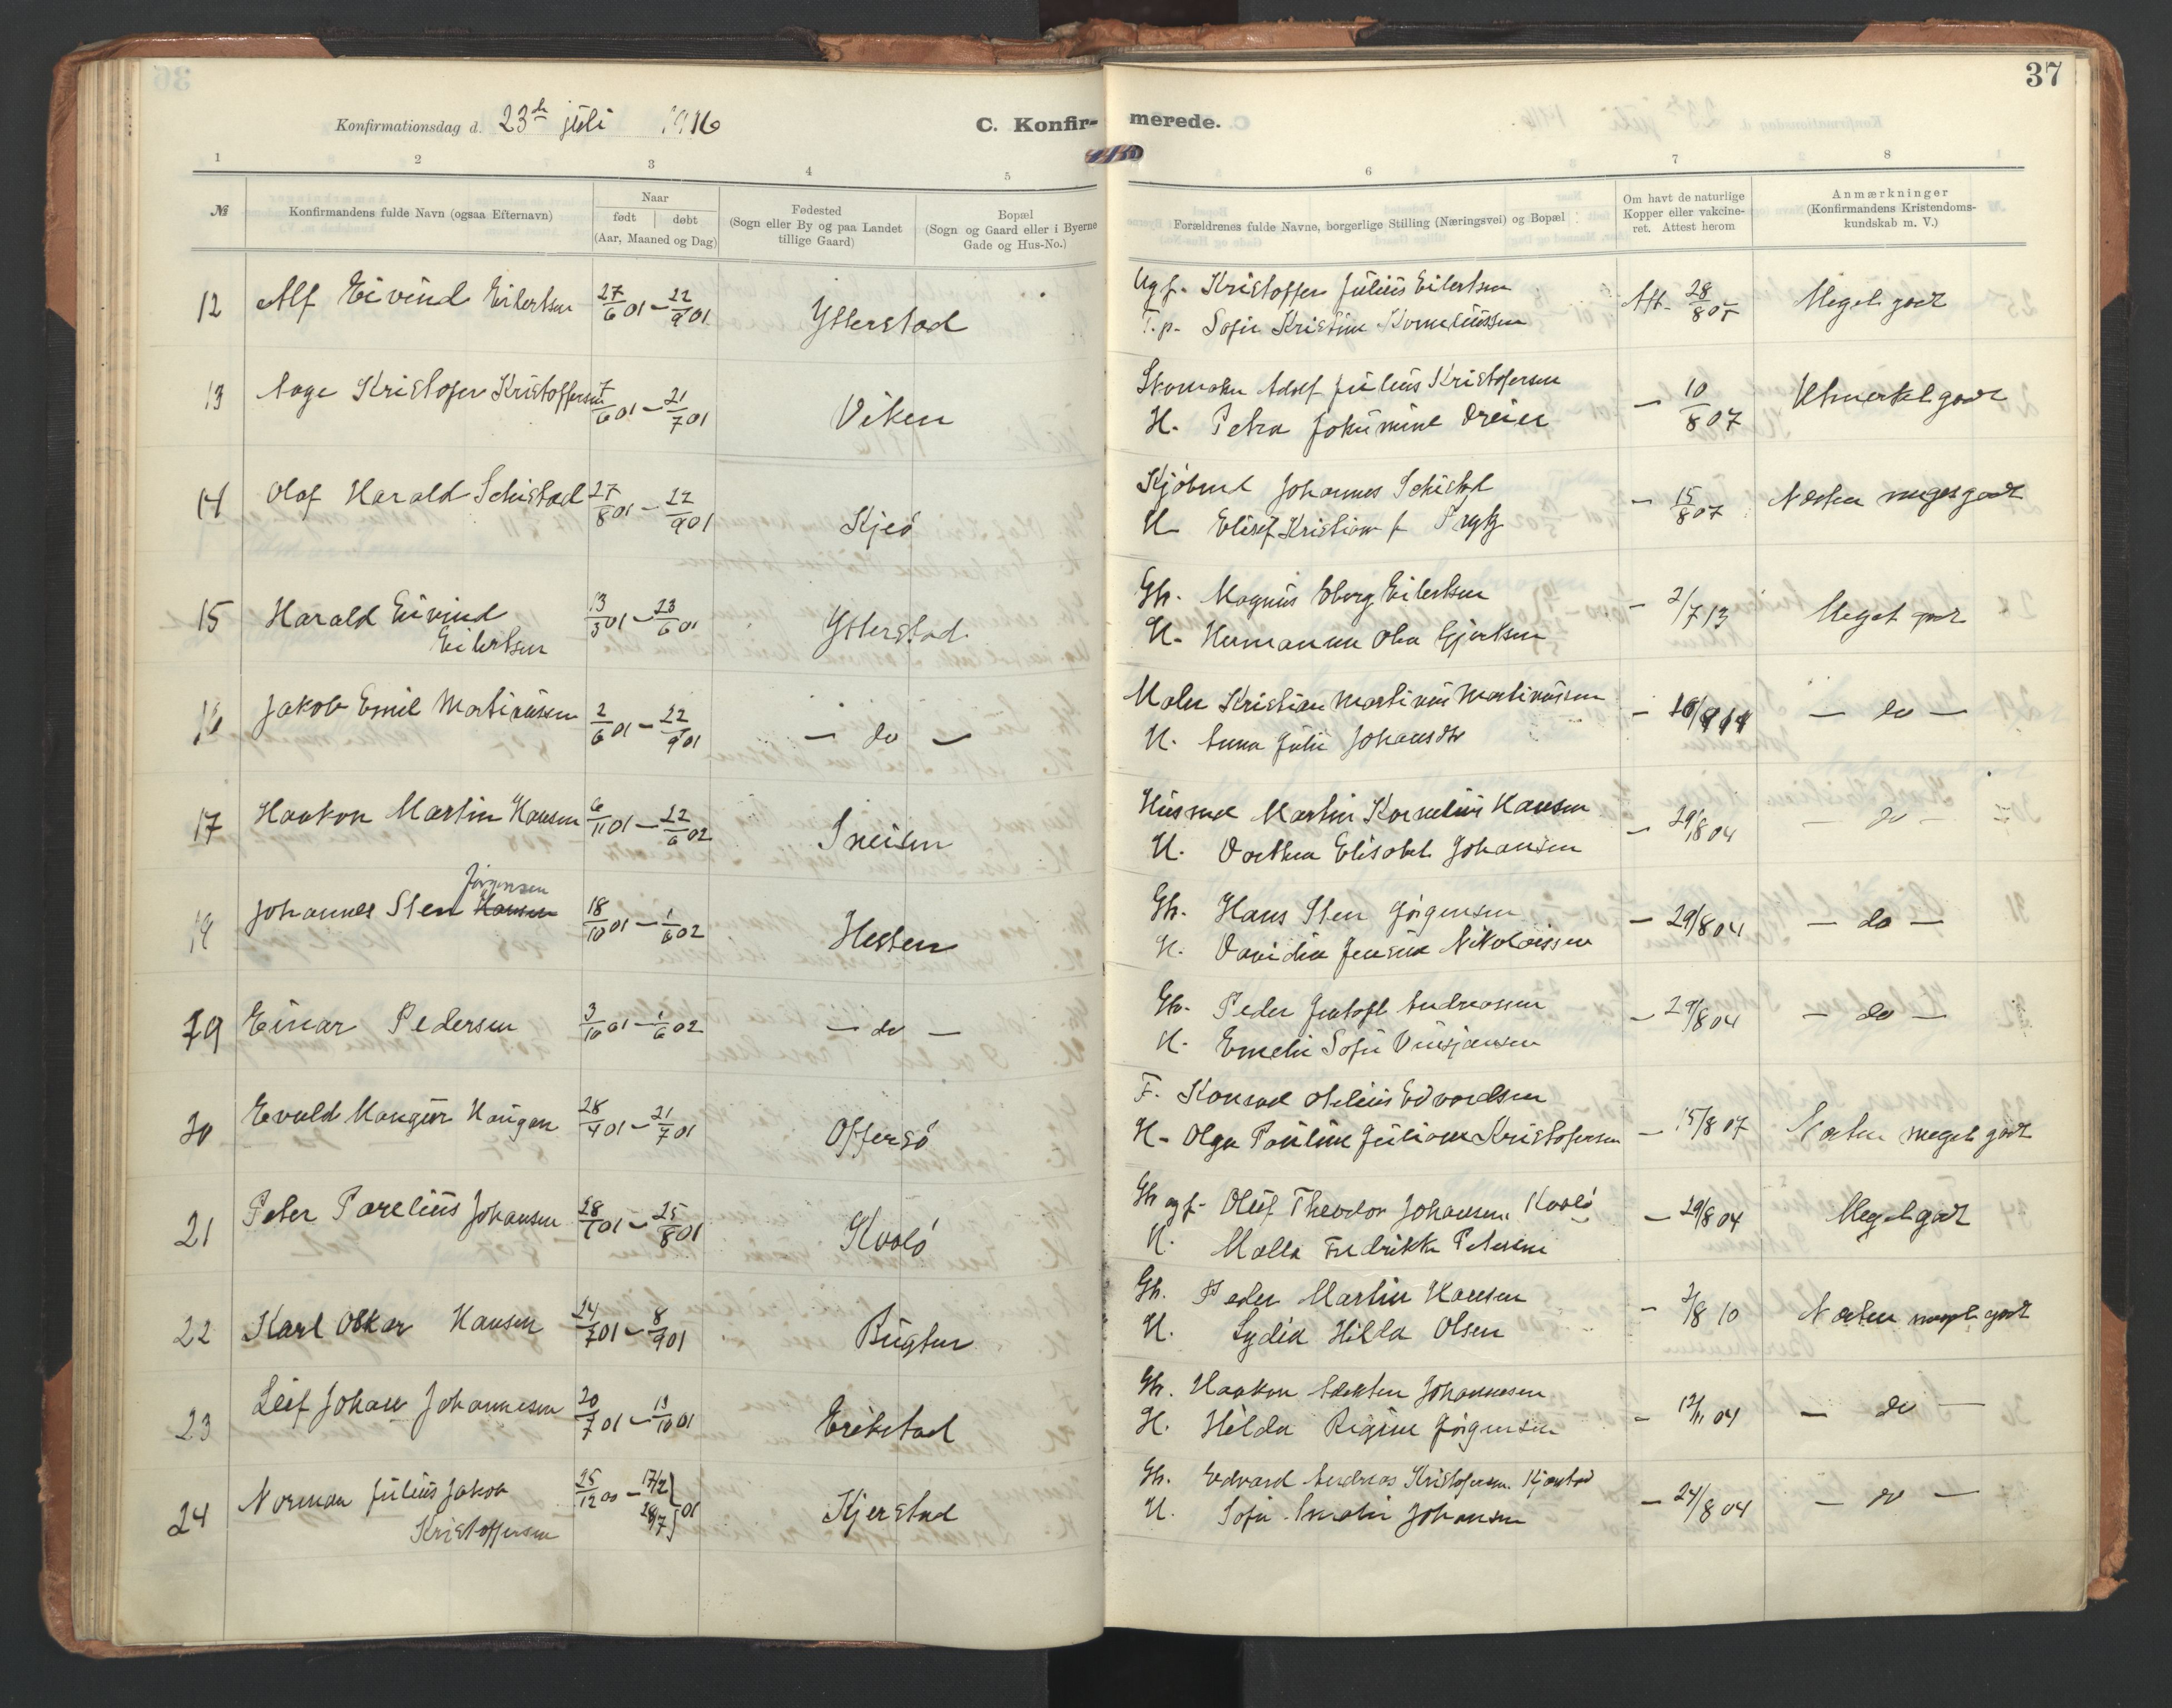 37
Konfirmationsdag d. 23de juli 1916
C. Konfir- merede.
1 2 3 4 5 6 7 8
№
Konfirmandens fulde Navn (ogsaa Efternavn)
Naar
født døbt
(Aar, Maaned og Dag)
Fødested
(Sogn eller By og paa Landet
tillige Gaard)
Bopæl
(Sogn og Gaard eller i Byerne
Gade og Hus-No.)
Forældrenes fulde Navne, borgerlige Stilling (Næringsvei) og Bopæl
Om havt de naturlige
Kopper eller vakcine-
ret. Attest herom
Anmærkninger
(Konfirmandens Kristendoms-
kundskab m. V.)
12 Alf Eivind Eilertsen 27/6 01 – 22/9 01 Ytterstad Ugf. Kristoffer Julius Eilertsen Att. 28/8 05 Meget godt
T.p. Sofie Kristine Korneliussen
13 Aage Kristofer Kristoffersen 7/6 01 – 21/7 01 Viken Skomaker Adolf Julius Kristofersen – 10/8 07 Utmerket godt
H. Petra Johannine Dreier
14 Olaf Harald Schistad 27/8 01 – 22/9 01 Kjeö Kjöbmd Johannes Schistad – 15/8 07 Næsten meget godt
H. Elisef Kristiane f.
15 Harald Eivind 13/3 01 – 23/6 01 Ytterstad Gbr. Magnus Eberg Eilertsen – 2/7 13 Meget godt
Eilertsen H. Hermanne Olea Gjertsen
16 Jakob Emil Martinussen 2/6 01 – 22/9 01 – do – Maler Kristian Martinus Martinussen – do –
H. Anna Julie Johansdtr
17 Haakon Martin Hansen 6/11 01 – 22/6 02 Sneisen Husmd Martin Kornelius Hansen – 29/8 04 – do –
H. Dorthea Elisabet Johansen
Jörgensen
18 Johannes Sten Hansen 18/10 01 – 1/6 02 Hesten Gbr. Hans Sten Jörgensen – 29/8 04 – do –
H. Davidia Jensine Nikolaissen
19 Einar Pedersen 3/10 01 – 1/6 02 – do – Gbr. Peder Andreassen – 29/8 04 – do –
H. Emelie Sofie
20 Evald Haugen 28/4 01 – 21/7 01 Offersö F. Konrad Edvardsen – 15/8 07 Næsten meget godt
H. Olga Pauline Juliane Kristofersen
21 Peter Parelius Johansen 28/1 01 – 25/8 01 Kvalö Gbr og f. Oluf Theodor Johansen, Kvalö – 29/8 04 Meget godt
H. Malla Fredrikke Petersen
22 Karl Oskar Hansen 24/7 01 – 8/9 01 Bugten Gbr. Peder Martin Hansen – 2/8 10 Næsten meget godt
H. Lydia Hilla Olsen
23 Leif Johan Johannesen 20/7 01 – 13/10 01 Erikstad Gbr. Haakon Johannesen – 12/11 04 – do –
H. Hilda Regine Jörgensen
24 Norman Julius Jakob 25/12 00 – 17/2 Kjerstad Gbr. Edvard Andreas Kristofersen Kjerstad – 24/8 04 – do –
Kristoffersen 28/7 } 01 H. Sofie Amalie Johansen